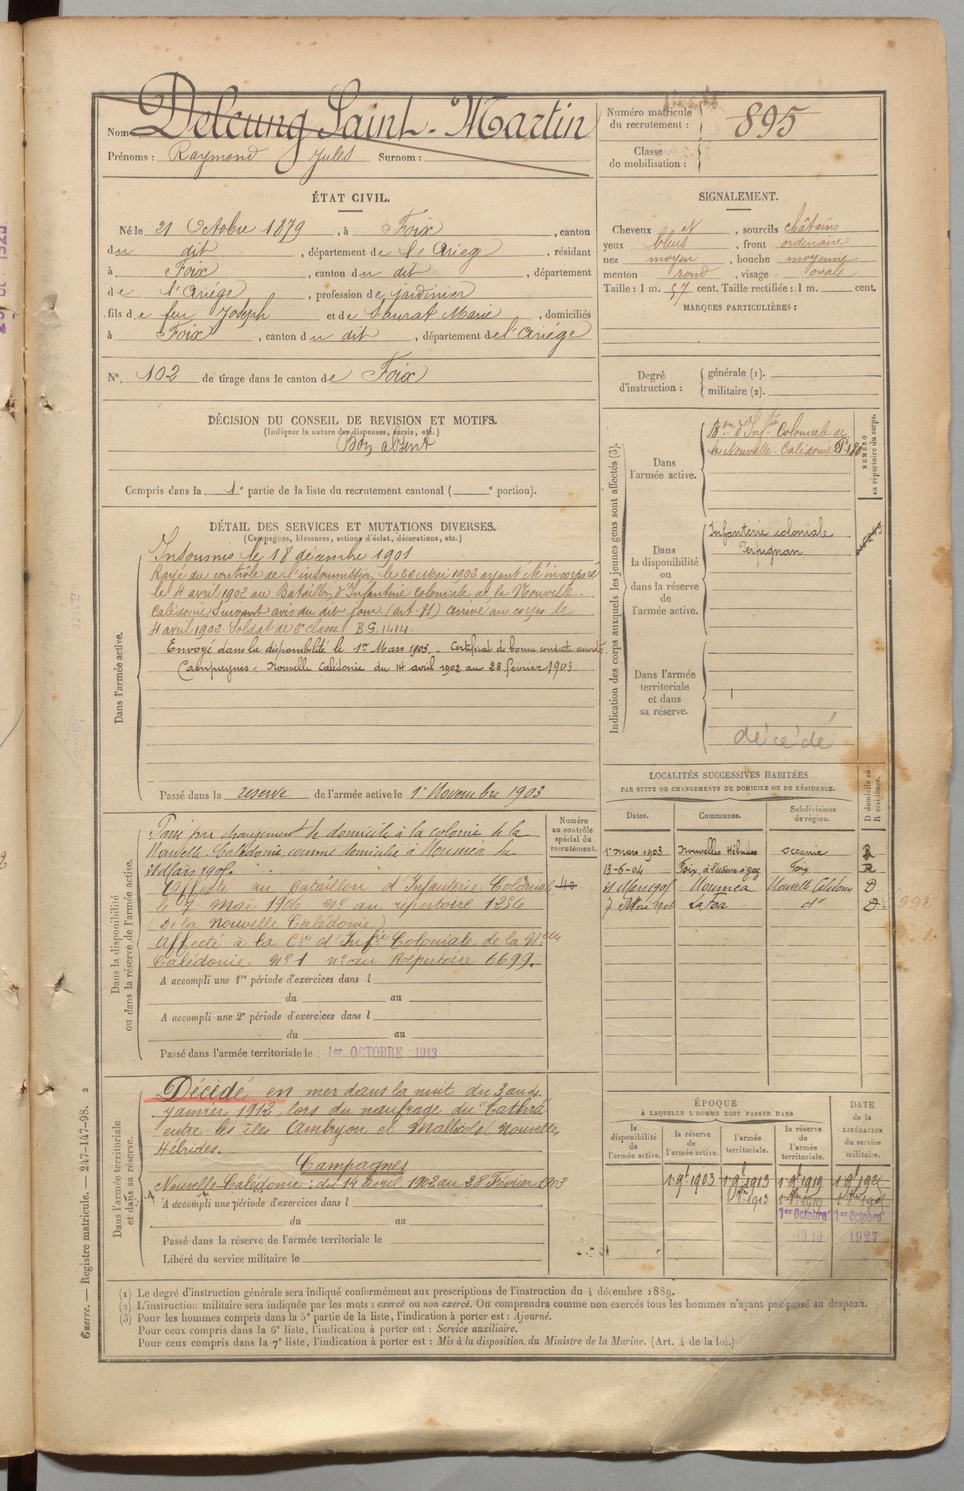 Nom : Deleung Saint-Martin
Prénoms : Raymond Jules Surnom :
Numéro matricule du recrutement : 895
Classe de mobilisation :
ÉTAT CIVIL.
Né le 21 Octobre 1879, à Foix, canton
du dit, département de l'Ariège, résidant
à Foix, canton du dit, département
de l'Ariége, profession de jardinier
fils de feu Joseph et de Saurat Marie, domiciliés
à Foix, canton du dit, département de l'Ariége
N° 102 de tirage dans le canton de Foix
SIGNALEMENT.
Cheveux et, sourcils châtains
yeux bleus, front ordinaire
nez moyen, bouche moyenne
menton rond, visage ovale
Taille : 1 m. 57 cent. Taille rectifiée : 1 m. cent.
MARQUES PARTICULIÈRES :
Degré d'instruction : générale (1).
militaire (2).
DÉCISION DU CONSEIL DE REVISION ET MOTIFS.
(Indiquer la nature des dispenses, sursis, etc.)
Bon absent
Compris dans la 1e partie de la liste du recrutement cantonal ( e portion).
DÉTAIL DES SERVICES ET MUTATIONS DIVERSES.
(Campagnes, blessures, actions d'éclat, décorations, etc.)
Dans l'armée active.
Insoumis le 18 décembre 1901
Rayé du contrôle de l'insoumission le 26 Mai 1902 ayant été incorporé
le 4 avril 1902 au Bataillon d'Infanterie Coloniale de la Nouvelle-
Calédonie, suivant avis du dit jour (art. 71) arrivé au corps le
4 avril 1902 Soldat de 2e classe. B G. 1414.
Envoyé dans la disponibilité le 1er Mars 1903. Certificat de bonne conduite accordé.
Campagnes : Nouvelle Calédonie du 14 avril 1902 au 28 février 1903.
Passé dans la reserve de l'armée active le 1er Novembre 1903
Indication des corps auxquels les jeunes gens sont affectés (3).
NUMÉRO au répertoire du corps.
Dans l'armée active.
Bon d'Infrie Coloniale de
la Nouvelle-Calédonie
Dans la disponibilité ou dans la réserve de l'armée active.
Infanterie coloniale
Perpignan
Dans l'armée territoriale et dans sa réserve.
décédé
LOCALITÉS SUCCESSIVES HABITÉES
PAR SUITE DE CHANGEMENTS DE DOMICILE OU DE RÉSIDENCE.
Dates. Communes. Subdivisions de région. D domicile ou R résidence.
1er mars 1903 Nouvelles Hébrides Oceanie R
13-6-04 Foix, Foix R
21 Mars 1905 Nouméa Nouvelle Calédonie D
7 1906 La Foa do D
Dans la disponibilité ou dans la réserve de l'armée active.
Numéro au contrôle spécial du recrutement.
Passé par changement de domicile à la colonie de la
Nouvelle-Calédonie, comme domicilié à Nouméa le
21 Mars 1905.
Affecté au Bataillon d'Infanterie Coloniale
le 9 mai 1906 No au répertoire 1256
(De la Nouvelle Calédonie)
Affecté à la Cie d'Infrie Coloniale de la Nlle
Calédonie No 1 no au Répertoire 6699.
A accompli une 1re période d'exercices dans l
du au
A accompli une 2e période d'exercices dans l
du au
Passé dans l'armée territoriale le 1er OCTOBRE 1913
Dans l'armée territoriale et dans sa réserve.
Décédé en mer dans la nuit du 3 au 4
janvier 1912 lors du naufrage du
entre les îles Ambrym et Mallicolo (Nouvelles
Hébrides.
Campagnes
Nouvelle-Calédonie : du 14 avril 1902 au 28 Février 1903
A accompli une période d'exercices dans l
du au
Passé dans la réserve de l'armée territoriale le
Libéré du service militaire le
ÉPOQUE
À LAQUELLE L'HOMME DOIT PASSER DANS
la disponibilité de l'armée active. la réserve de l'armée active. l'armée territoriale. la réserve de l'armée territoriale.
DATE de la LIBÉRATION du service militaire.
1903 1913 1919
1913 1919
1er Octobre 1919
1er Octobre 1927
(1) Le degré d'instruction générale sera indiqué conformément aux prescriptions de l'instruction du 4 décembre 1889.
(2) L'instruction militaire sera indiquée par les mots : exercé ou non exercé. On comprendra comme non exercés tous les hommes n'ayant pas passé au drapeau.
(3) Pour les hommes compris dans la 5e partie de la liste, l'indication à porter est : Ajourné.
Pour ceux compris dans la 6e liste, l'indication à porter est : Service auxiliaire.
Pour ceux compris dans la 7e liste, l'indication à porter est : Mis à la disposition du Ministre de la Marine. (Art. 4 de la loi.)
Guerre. — Registre matricule. — 247-147-98. 2